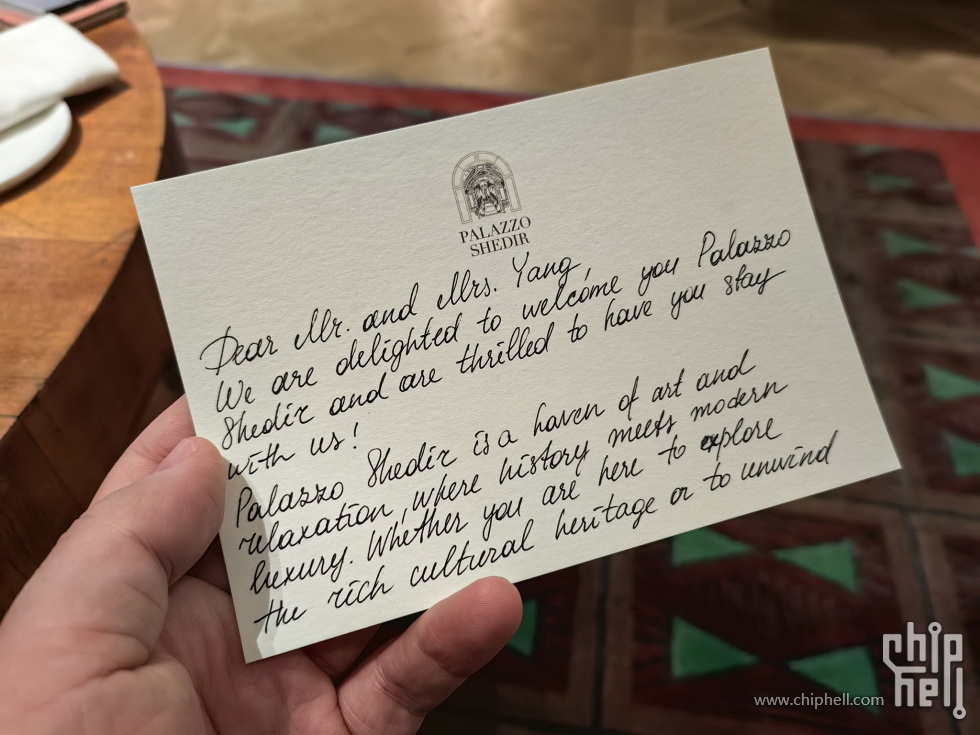 PALAZZO
SHEDIR
Dear Mr. and Mrs. Yang,
We are delighted to welcome you Palazzo
Shedir and are thrilled to have you stay
with us!
Palazzo Shedir is a haven of art and
relaxation, where history meets modern
luxury. Whether you are here to explore
the rich cultural heritage or to unwind
chip
hell
www.chiphell.com